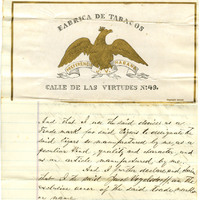 FABRICA DE TABACOS
HABANA
CALLE DE LAS VIRTUDES No. 49.
And that I use the said device as a
Trademark for said Cigars to designate the
said Cigars as manufactured by me, as a
peculiar kind, quality and character, and
as an article manufactured by me.
And I further declare and
that I the said
exclusive owner of the said trade mark
or name